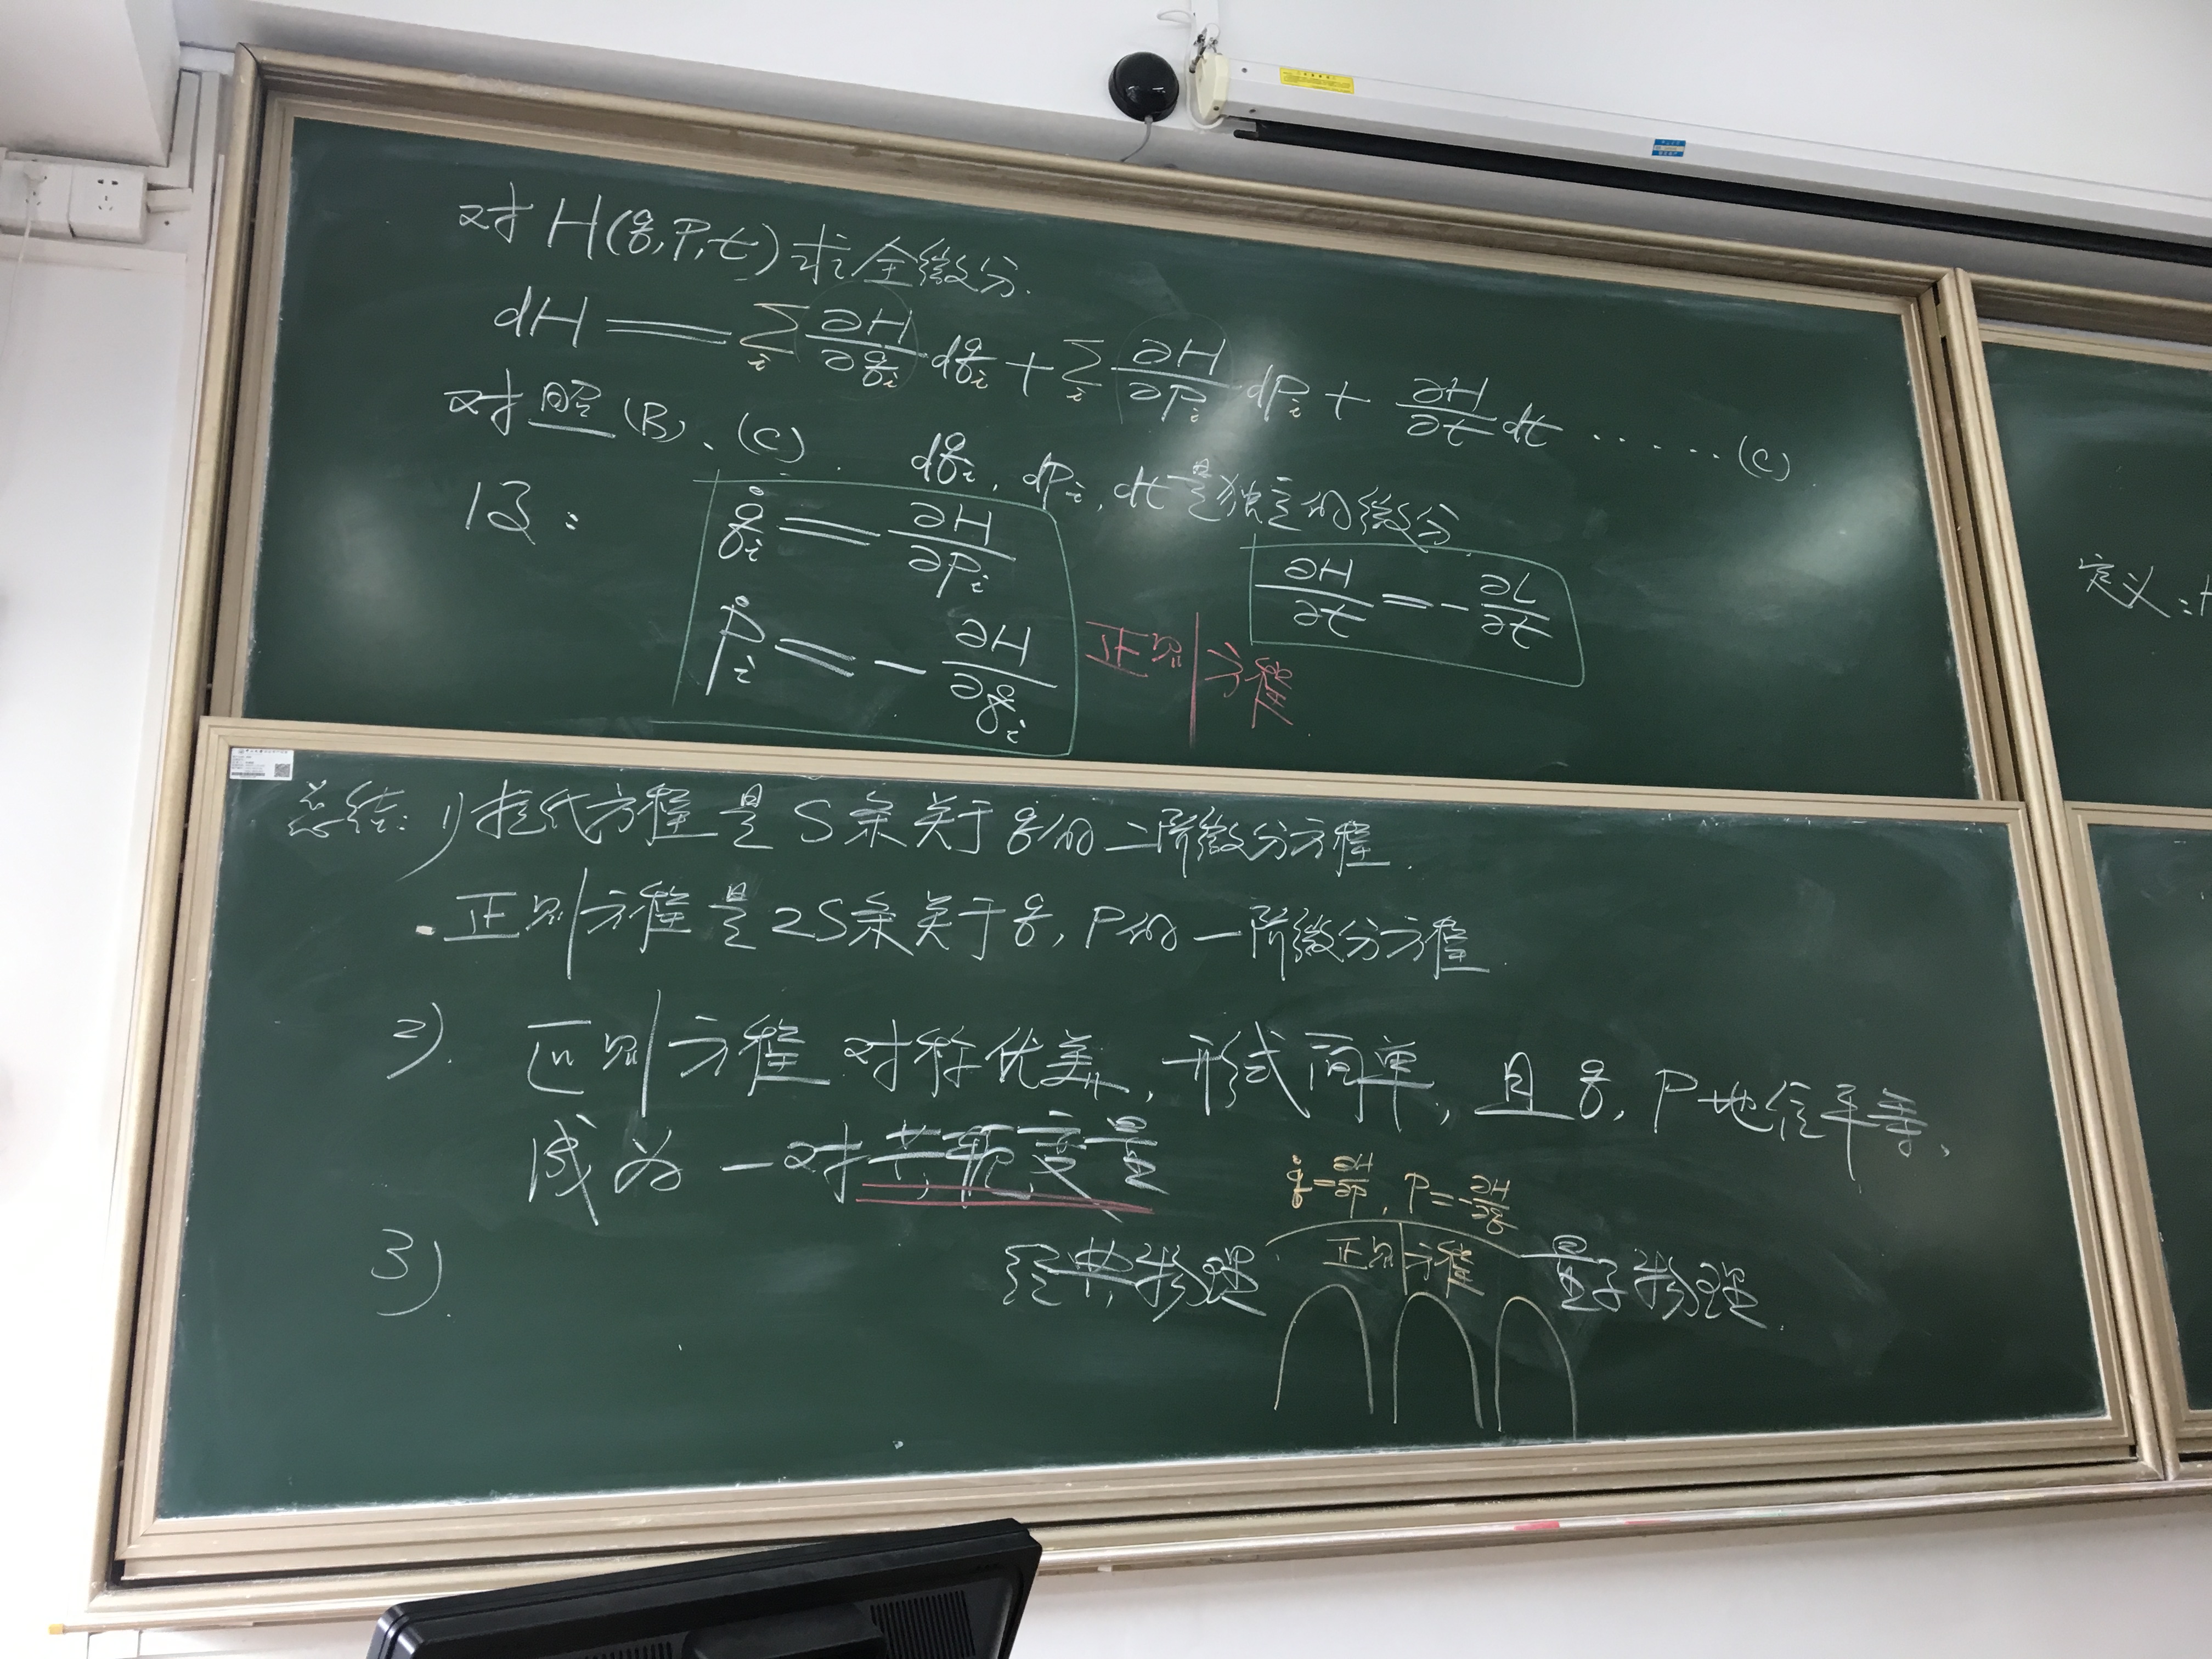 对 H(q,P,t) 求全微分.
dH = ∑ᵢ ∂H/∂qᵢ dqᵢ + ∑ᵢ ∂H/∂Pᵢ dPᵢ + ∂H/∂t dt ······(C)
对照(B)、(C). dqᵢ, dPᵢ, dt是独立的微分
得: q̇ᵢ = ∂H/∂Pᵢ
∂H/∂t = -∂L/∂t
ṗᵢ = -∂H/∂qᵢ
正则方程
定义:
总结: 1) 拉氏方程是S条关于q的二阶微分方程.
正则方程是2S条关于q, P的一阶微分方程.
2). 正则方程对称优美, 形式简单, 且q, P地位平等、
成为一对共轭变量
q̇ = ∂H/∂P, Ṗ = -∂H/∂q
3). 经典物理 正则方程 量子物理.